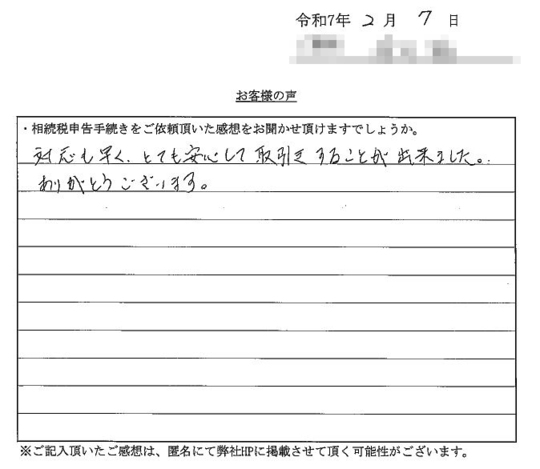 令和7年 2月 7日
お客様の声
・相続税申告手続きをご依頼頂いた感想をお聞かせ頂けますでしょうか。
対応も早く、とても安心して取引きすることが出来ました。
ありがとうございます。
※ご記入頂いたご感想は、匿名にて弊社HPに掲載させて頂く可能性がございます。